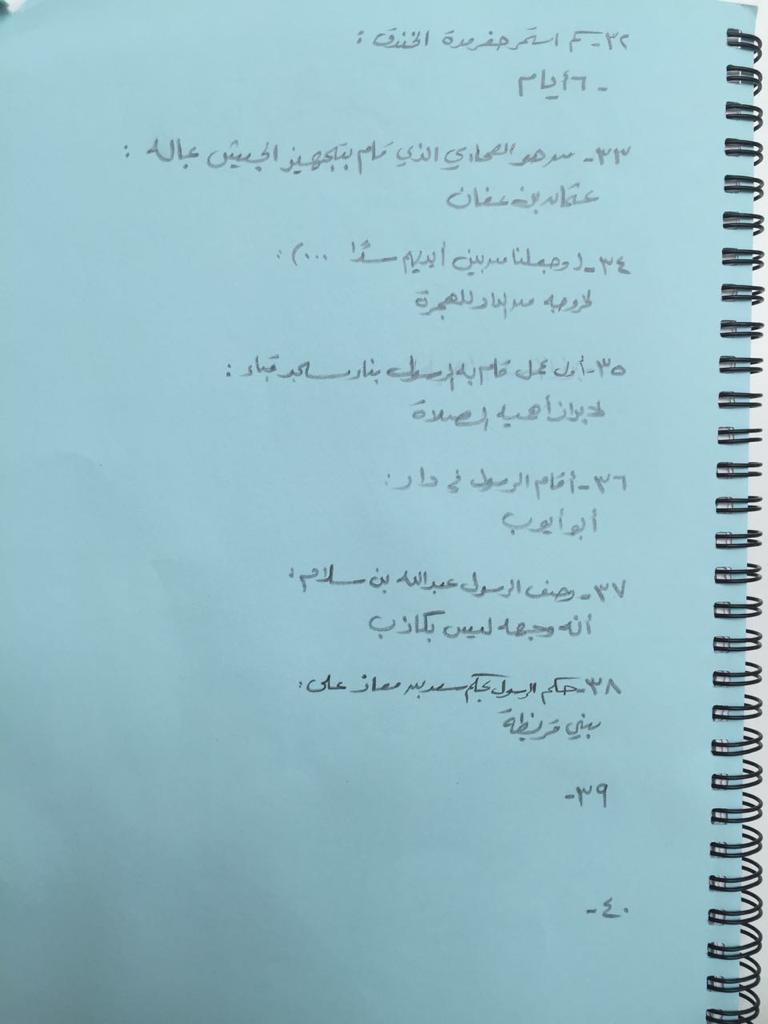 ٣٢- كم استمر حفر مدة الخندق :
- ٦ أيام
٣٣- من هو الصحابي الذي قام بتجهيز الجيش بماله :
عثمان بن عفان
٣٤- (وجعلنا من بين أيديهم سدًا ...) :
لخروجه من الدار للهجرة
٣٥- أول عمل قام به الرسول بناء مسجد قباء :
لابراز أهمية الصلاة
٣٦- أقام الرسول في دار :
أبو أيوب
٣٧- وصف الرسول عبدالله بن سلام :
أنه وجهه ليس بكاذب
٣٨- حكم الرسول بحكم سعد بن معاذ على :
بني قريظة
٣٩-
٤٠-